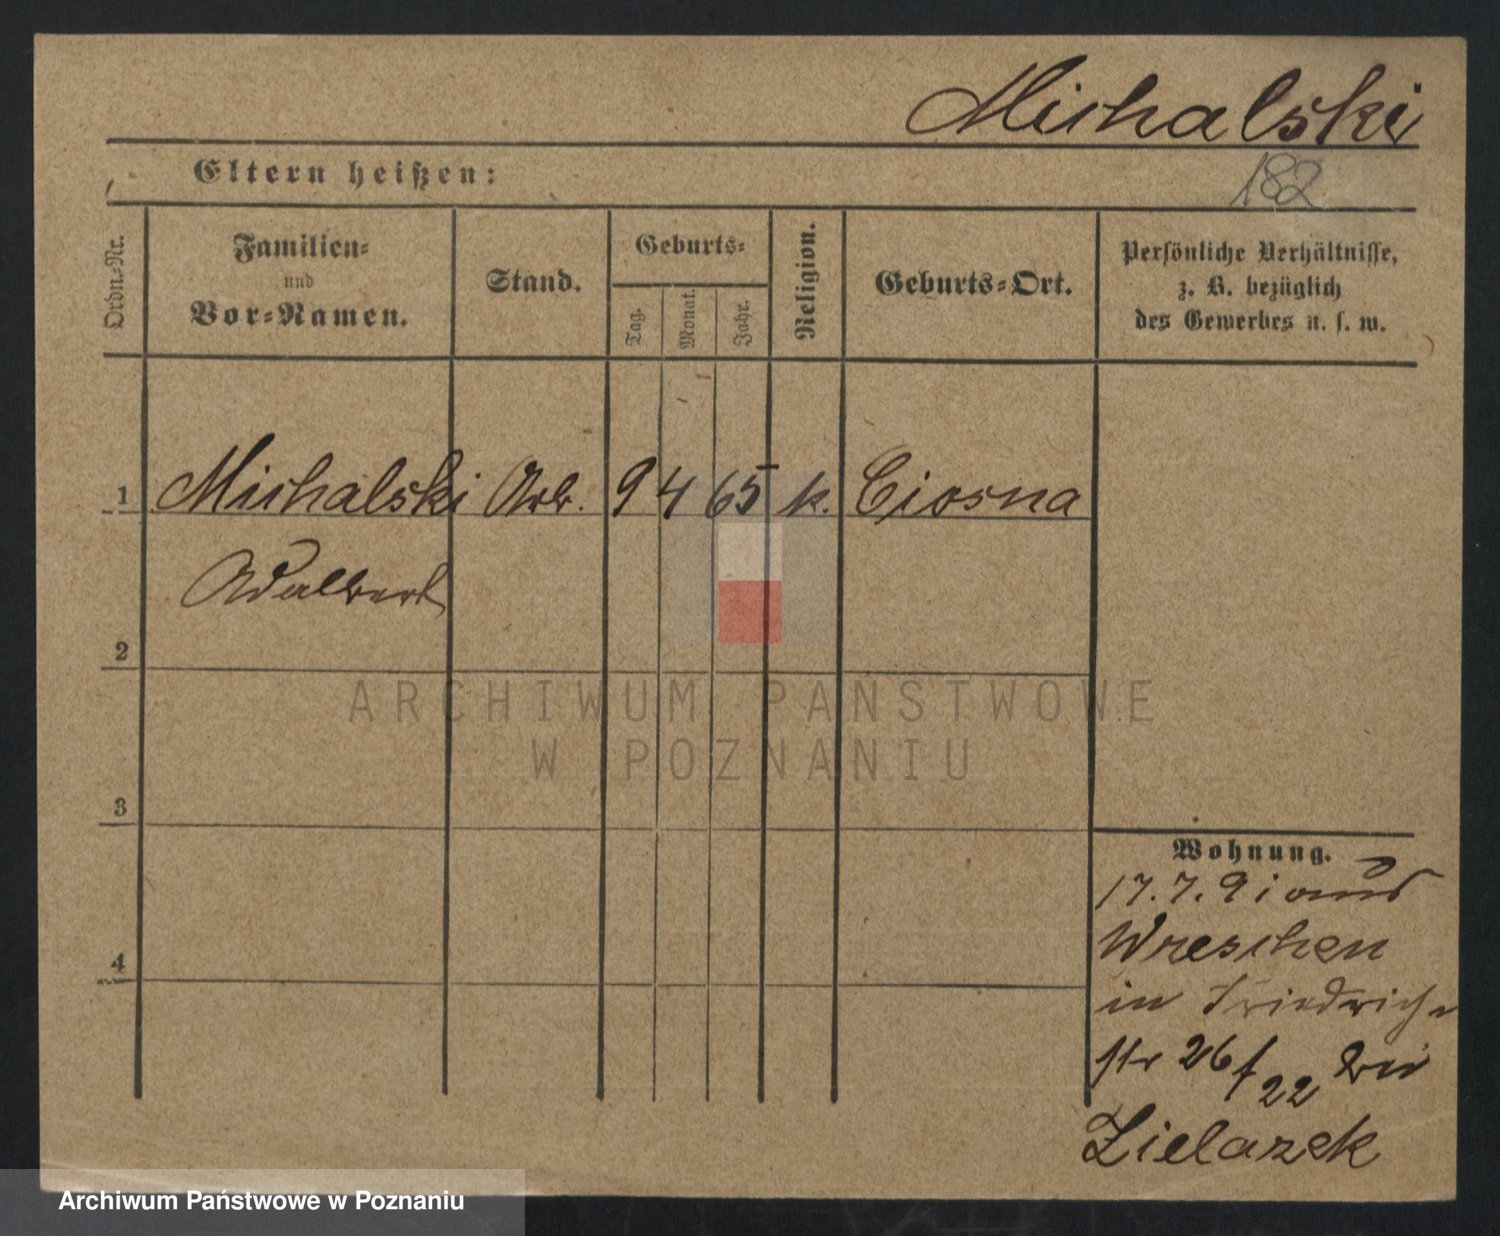 Michalski
182
Eltern heißen:
Ordn.-Nr.
Familien-
und
Vor-Namen.
Stand.
Geburts-
Tag.
Monat.
Jahr.
Religion.
Geburts-Ort.
Persönliche Verhältnisse,
z. B. bezüglich
des Gewerbes u. s. w.
1 Michalski Arb. 9 4 65 k. Ciosna
Adalbert
2
3
4
Wohnung.
17.7.91 aus
Wreschen
in Friedrich-
str 26/22 bei
Zielazek
ARCHIWUM PAŃSTWOWE
W POZNANIU
Archiwum Państwowe w Poznaniu